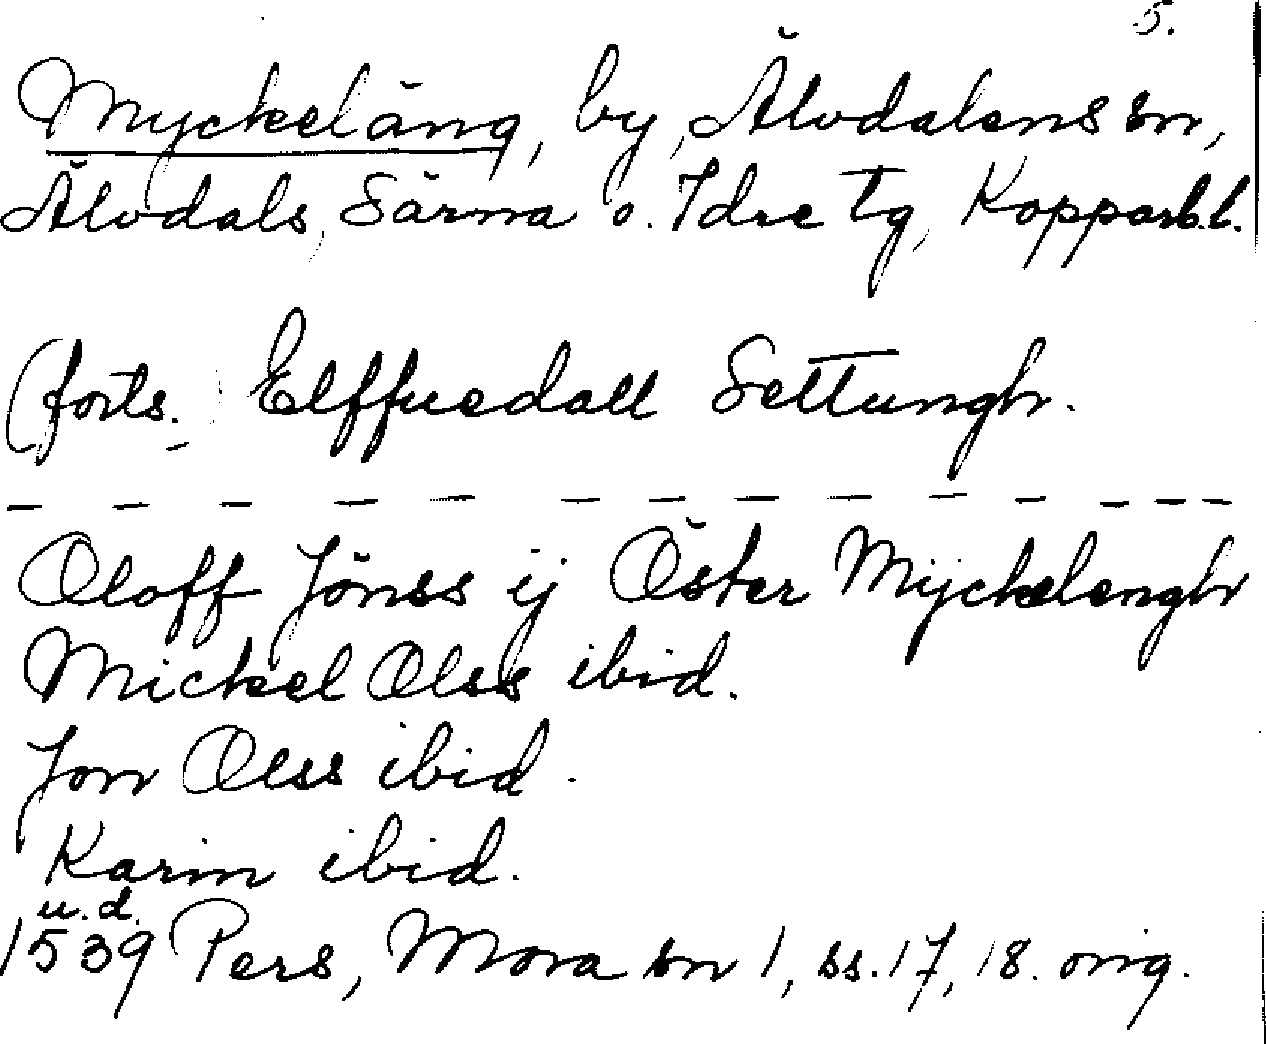 5.
Myckeläng, by, Älvdalens sn,
Älvdals, Särna o. Idre tg, Kopparb.l.
(forts.) Elffuedall Settungh.
— — — — — — — — — — — — — —
Oloff Jönss ij Öster Myckelengh
Mickel Olss ibid.
Jon Olss ibid.
Karin ibid.
u.d.
1539 Pers, Mora sn 1, ss. 17, 18. orig.